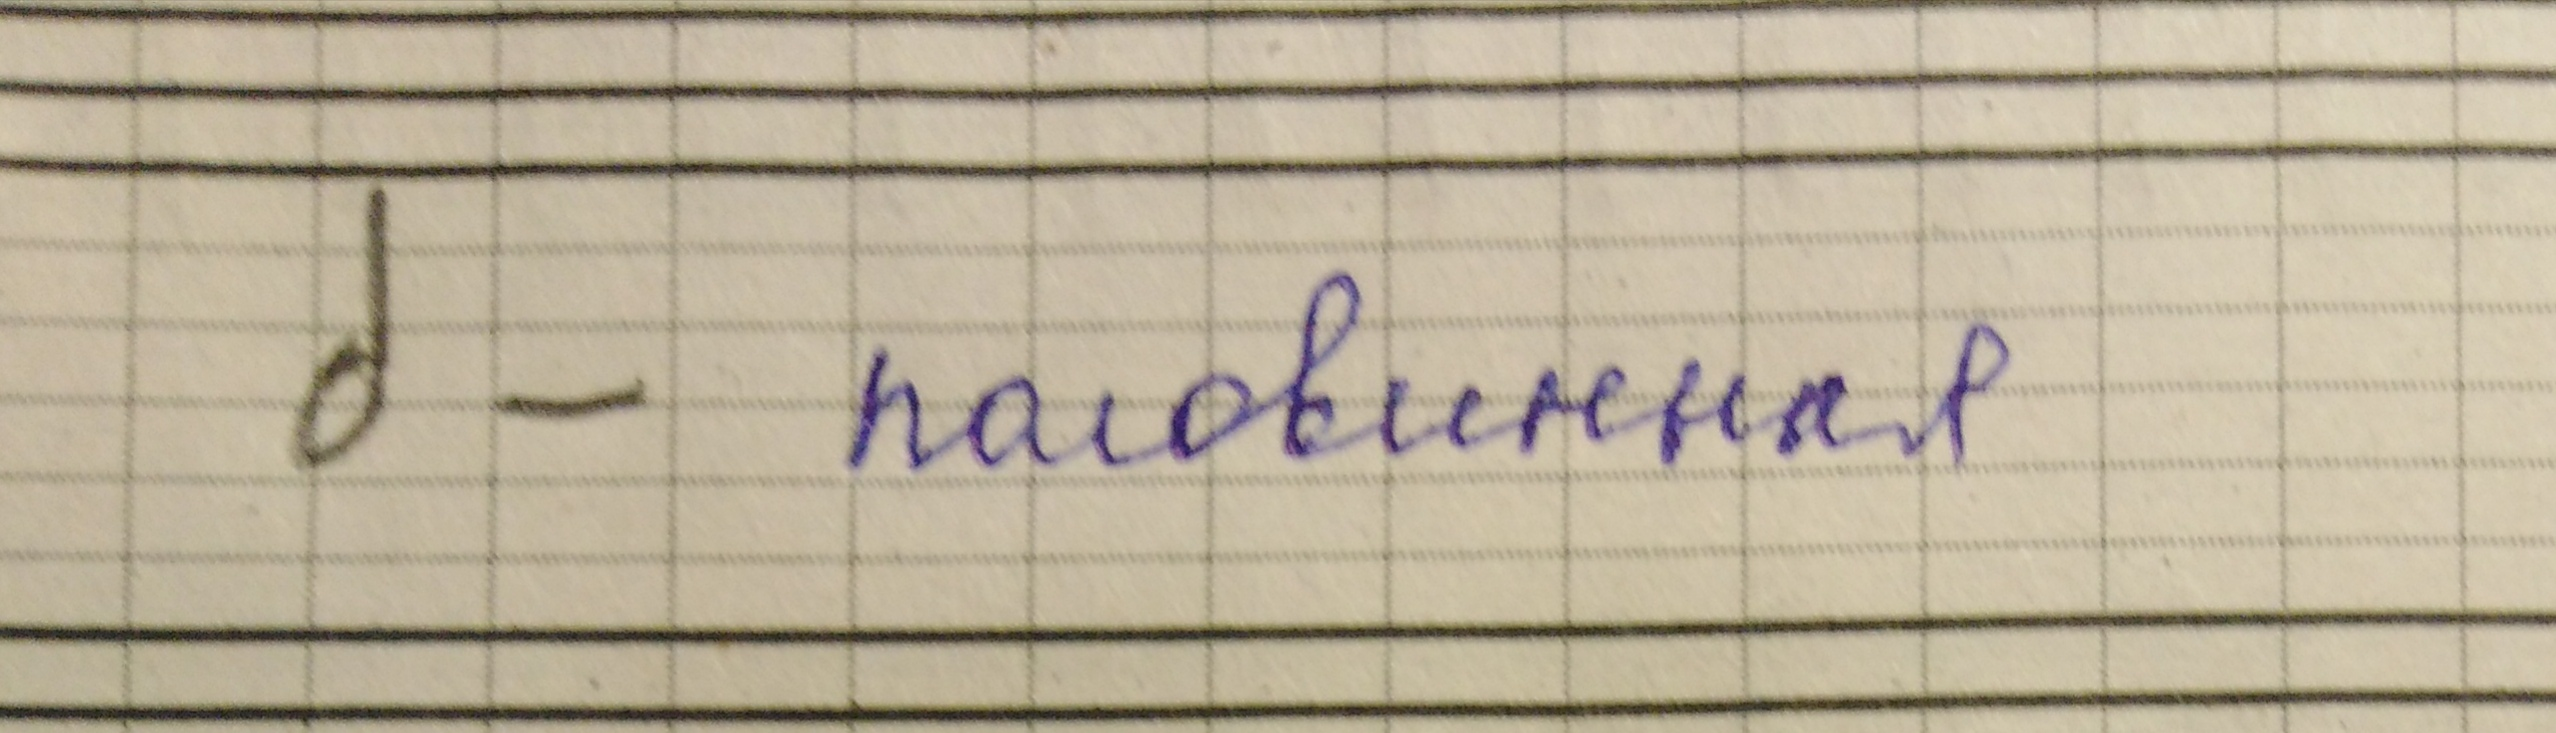 𝅗𝅥 – половинная